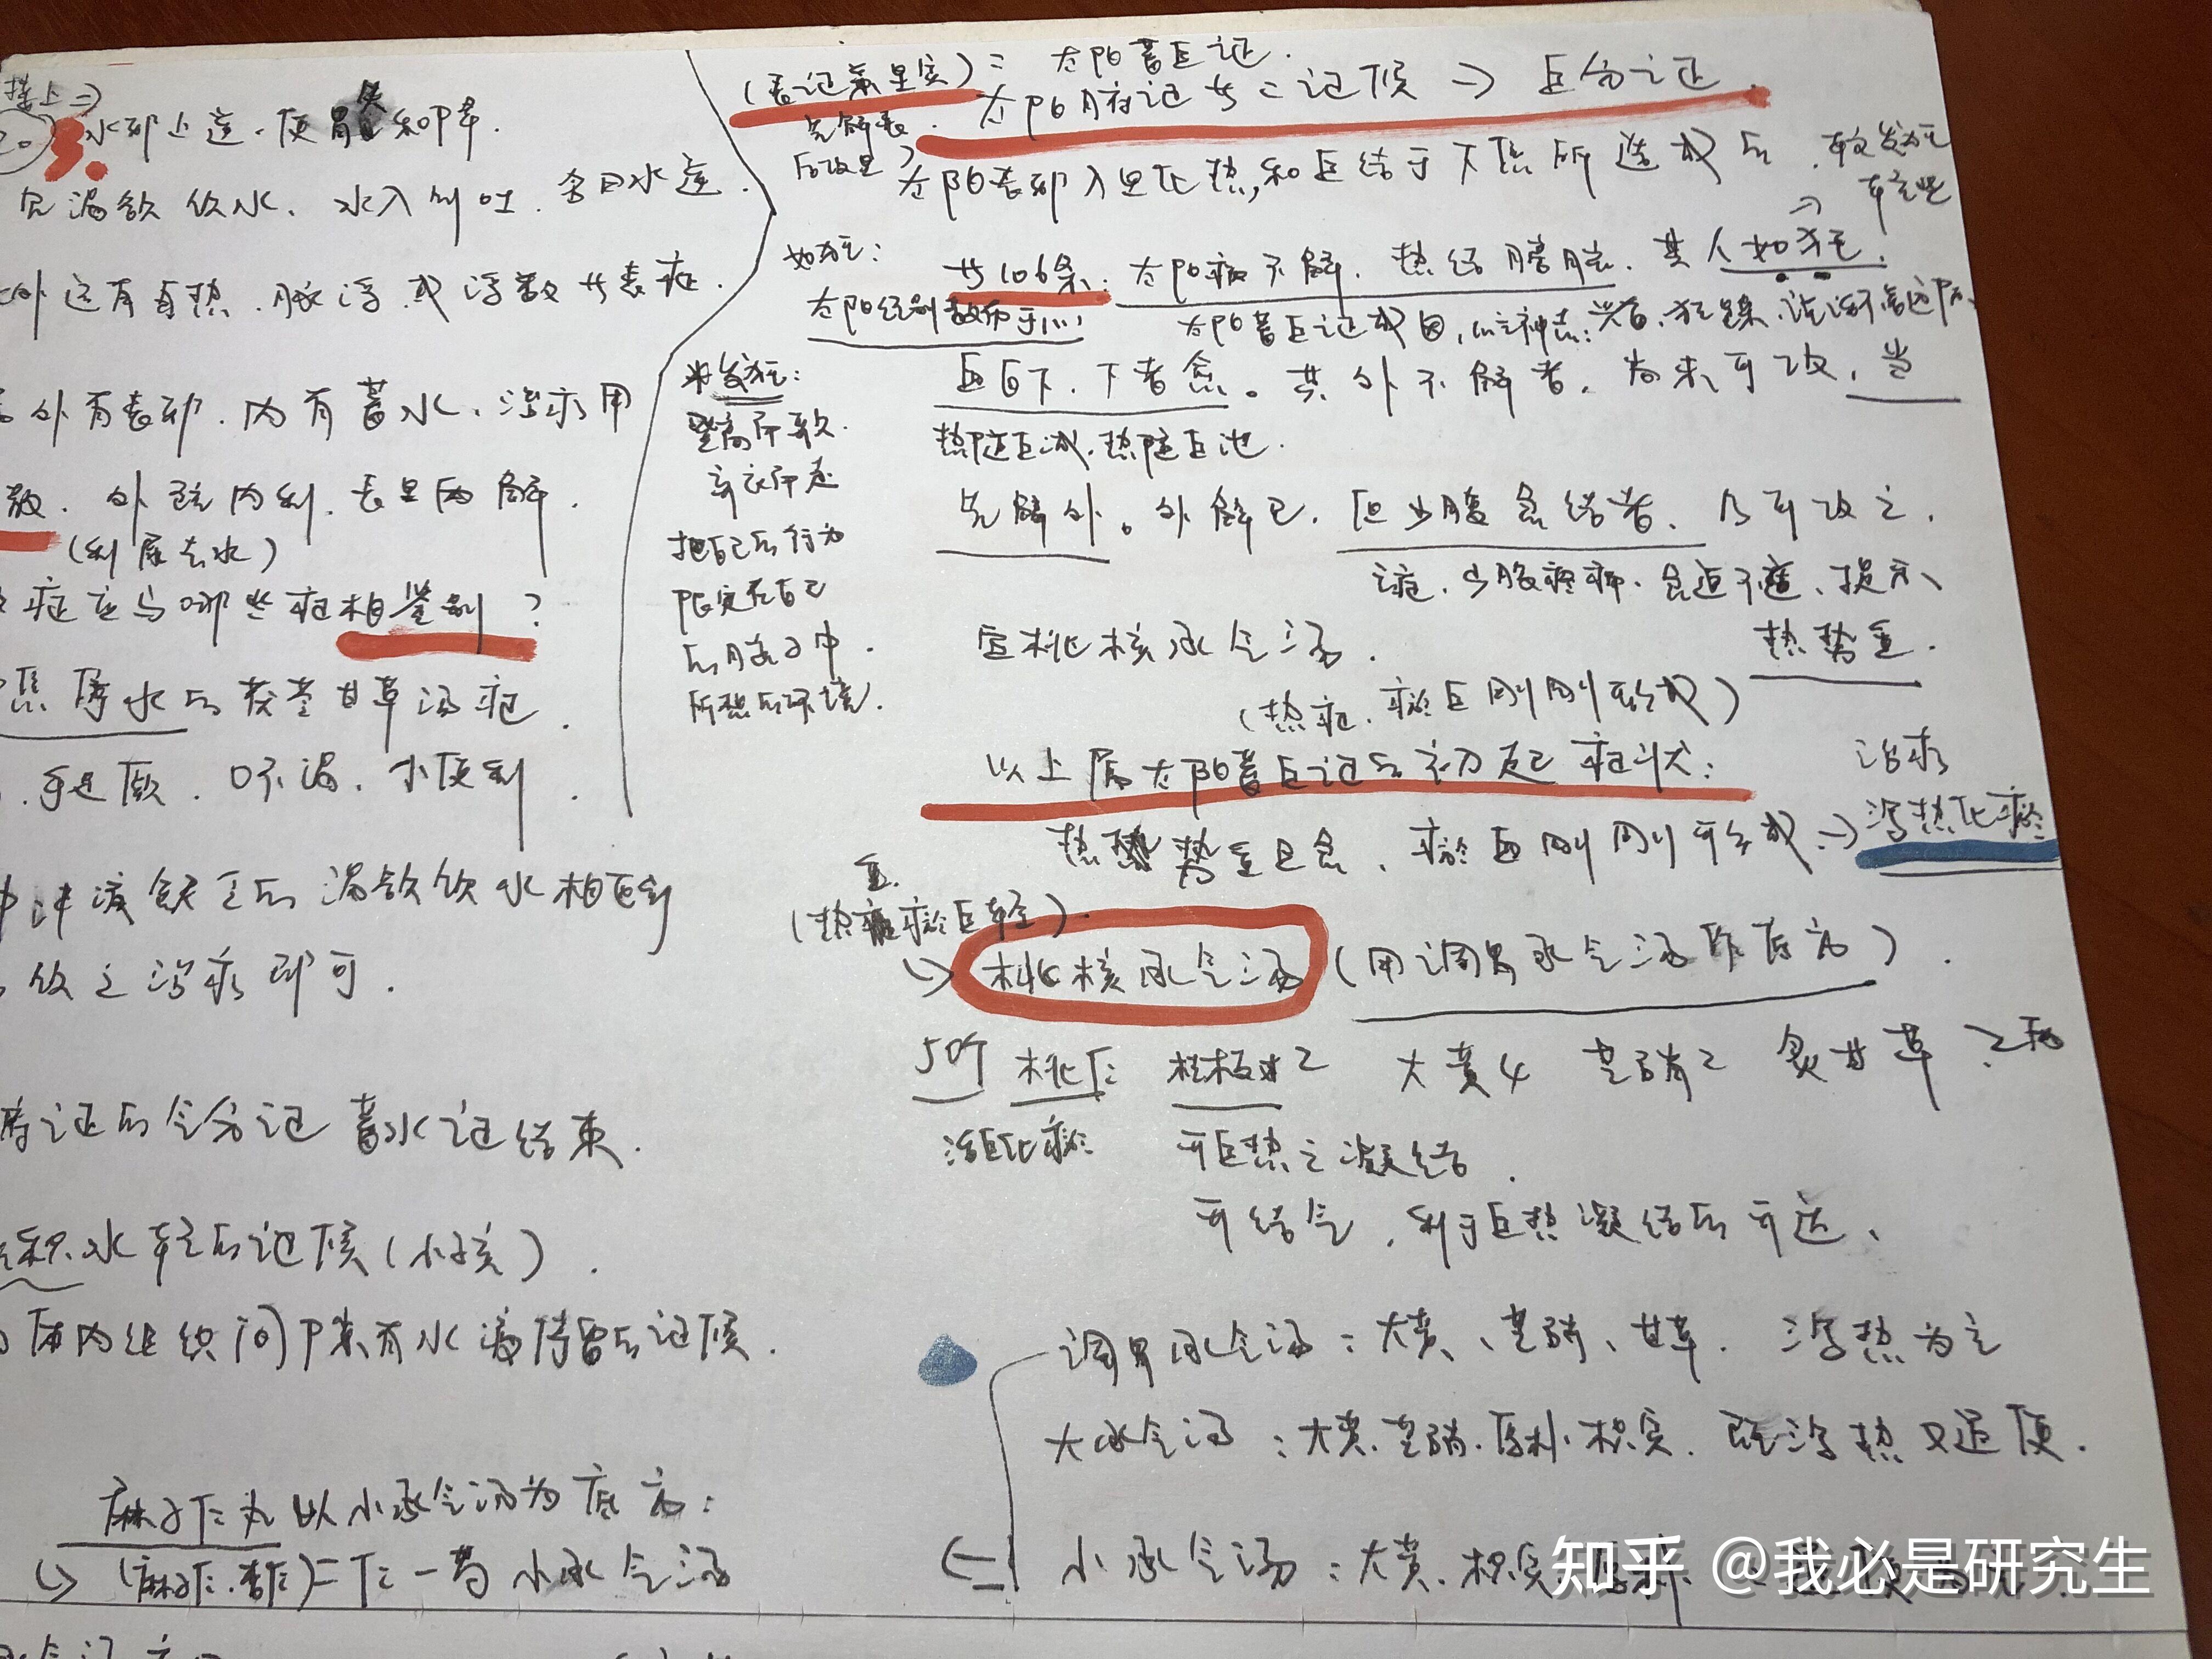 接上⇒
水邪上逆.使胃失和降.
见渴欲饮水、水入则吐.名曰水逆.
外还有身热.脉浮或浮数廿表症.
外有表邪.内有蓄水、治疗用
散.外疏内利.表里两解.
(利尿去水)
症应与哪些症相鉴别?
焦停水后茯苓甘草汤症.
手足厥.口不渴.小便利.
渴欲饮水相区别
饮之治疗即可.
腑证后气分证 蓄水证结束.
积水轻后证候(小孩).
体内组织间隙有水液停留后证候.
麻子仁丸以小承气汤为底方:
↳(麻子仁.杏仁)=仁一芍小承气汤
(表证兼里实)= 太阳蓄血证.
先解表
后攻里
太阳腑证廿二证候→血分之证.
太阳表邪入里化热,和血结于下焦所造成后.
较发狂
轻些
如狂:
太阳经别散布于心
廿106条:太阳病不解.热结膀胱.其人如狂.
太阳蓄血证成因,心主神志:
血自下.下者愈。其外不解者.尚未可攻.当
热随血减.热随血泄.
米发狂:
登高而歌.
弃衣而走
把自己后行为
限定在自己
后脑子中.
所想后环境.
先解外。外解已.但少腹急结者.乃可攻之.
主症.少腹疼痛.急迫不适、提示
热势重.
宜桃核承气汤.
(热症.瘀血刚刚形成)
以上属太阳蓄血证后初起症状:
热势重且急、瘀血刚刚形成→
治疗
泻热化瘀
(热重瘀血轻).
↳桃核承气汤(用调胃承气汤作底方).
50个 桃仁 桂枝2 大黄4 芒硝2 炙甘草 2两
活血化瘀 开血热之凝结.
开结气.利于血热凝结后开达、
调胃承气汤:大黄、芒硝、甘草. 泻热为主
大承气汤:大黄.芒硝.厚朴.枳实.既泻热又通便.
小承气汤:大黄.枳实.厚朴.
知乎 @我必是研究生